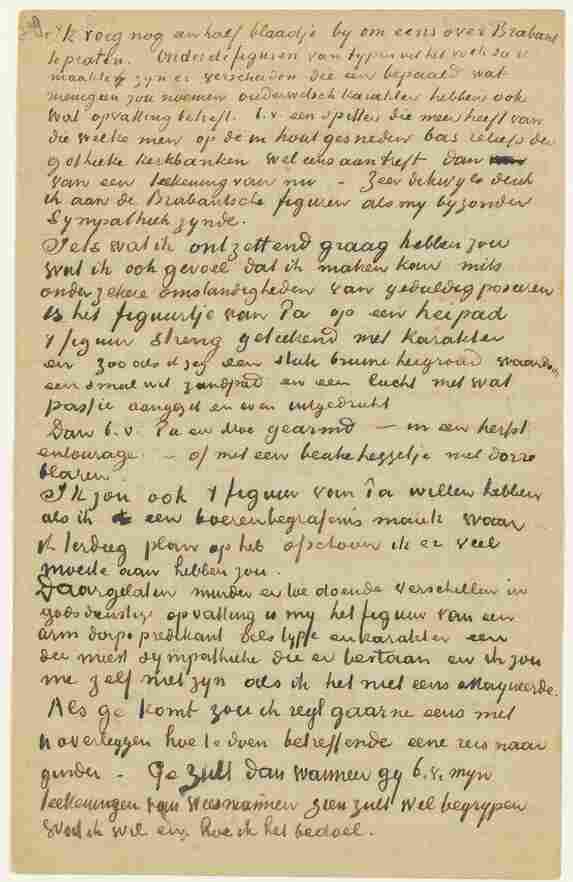 Ik voeg nog een half blaadje by om eens over Brabant
te praten. Onder de figuren van typen uit het volk die ik
maakte zyn er verscheiden die een bepaald wat
menigeen zou noemen ouderwetsch karakter hebben ook
wat opvatting betreft. b.v. een spitter die meer heeft van
die welke men op de in hout gesneden bas reliefs der
gothieke kerkbanken wel eens aantreft dan
van een teekening van nu – Zeer dikwyls denk
ik aan de Brabantsche figuren als my byzonder
sympathiek zynde.
Iets wat ik ontzettend graag hebben zou
wat ik ook gevoel dat ik maken kan mits
onder zekere omstandigheden van geduldig poseren
is het figuurtje van Pa op een heipad
t figuur streng geteekend met karakter
en zooals ik zeg een stuk bruine heigrond waardoor
een smal wit zandpad en een lucht met wat
passie aangezet en even uitgedrukt
Dan b.v. Pa en Moe gearmd – in een herfst
entourage – of met een beukeheggetje met dorre
blaren.
Ik zou ook t figuur van Pa willen hebben
als ik een boerenbegrafenis maak waar
ik terdeeg plan op heb ofschoon ik er veel
moeite aan hebben zou.
Daargelaten minder er toe doende verschillen in
godsdienstige opvatting is my het figuur van een
arm dorpspredikant als type en karakter een
der meest sympathieke die er bestaan en ik zou
me zelf niet zyn als ik het niet eens attaqueerde.
Als ge komt zou ik regt gaarne eens met
U overleggen hoe te doen betreffende eene reis naar
ginder – Ge zult dan wanneer gy b.v. myn
teekeningen van weesmannen zien zult wel begrypen
wat ik wil en hoe ik het bedoel.